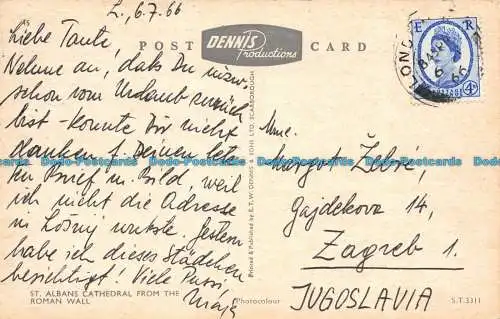 L., 6.7.66
Liebe Tante!
Nehme an, daß Du inzw.
schon vom Urlaub zurück
bist – konnte Dir nicht
danken f. Deinen letz-
ten Brief m. Bild, weil
ich nicht die Adresse
in Lošinj wusste. Gestern
habe ich dieses Städtchen
besichtigt! Viele Pussi
Maja
POST CARD
DENNIS
Productions
E R
POSTAGE
4D
LONDON
6
66
Mme.
Margot Žebić,
Gajdekova 14,
Zagreb 1.
JUGOSLAVIA
Printed & Published by E.T.W. DENNIS & SONS LTD. SCARBOROUGH
ST. ALBANS CATHEDRAL FROM THE
ROMAN WALL
Photocolour
S.T.3311
Dodo-Postcards Dodo-Postcards Dodo-Postcards Dodo-Postcards